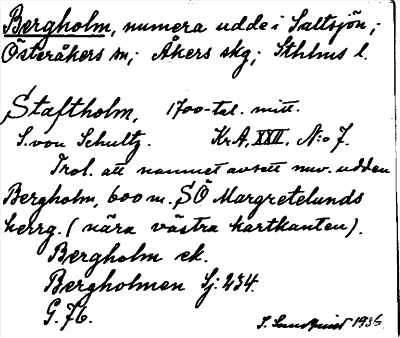 Bergholm, numera udde i Saltsjön;
Österåkers sn; Åkers skg; Sthlms l.
Staftholm, 1700-tal. mitt.
S. von Schultz. Kr.A, XXII. N:o 7.
Trol. att namnet avsett nuv. udden
Bergholm, 600 m. SÖ Margretelunds
herrg. (nära västra kartkanten).
Bergholm ek.
Bergholmen Sj: 234.
G. 76.
I. Lundquist 1936